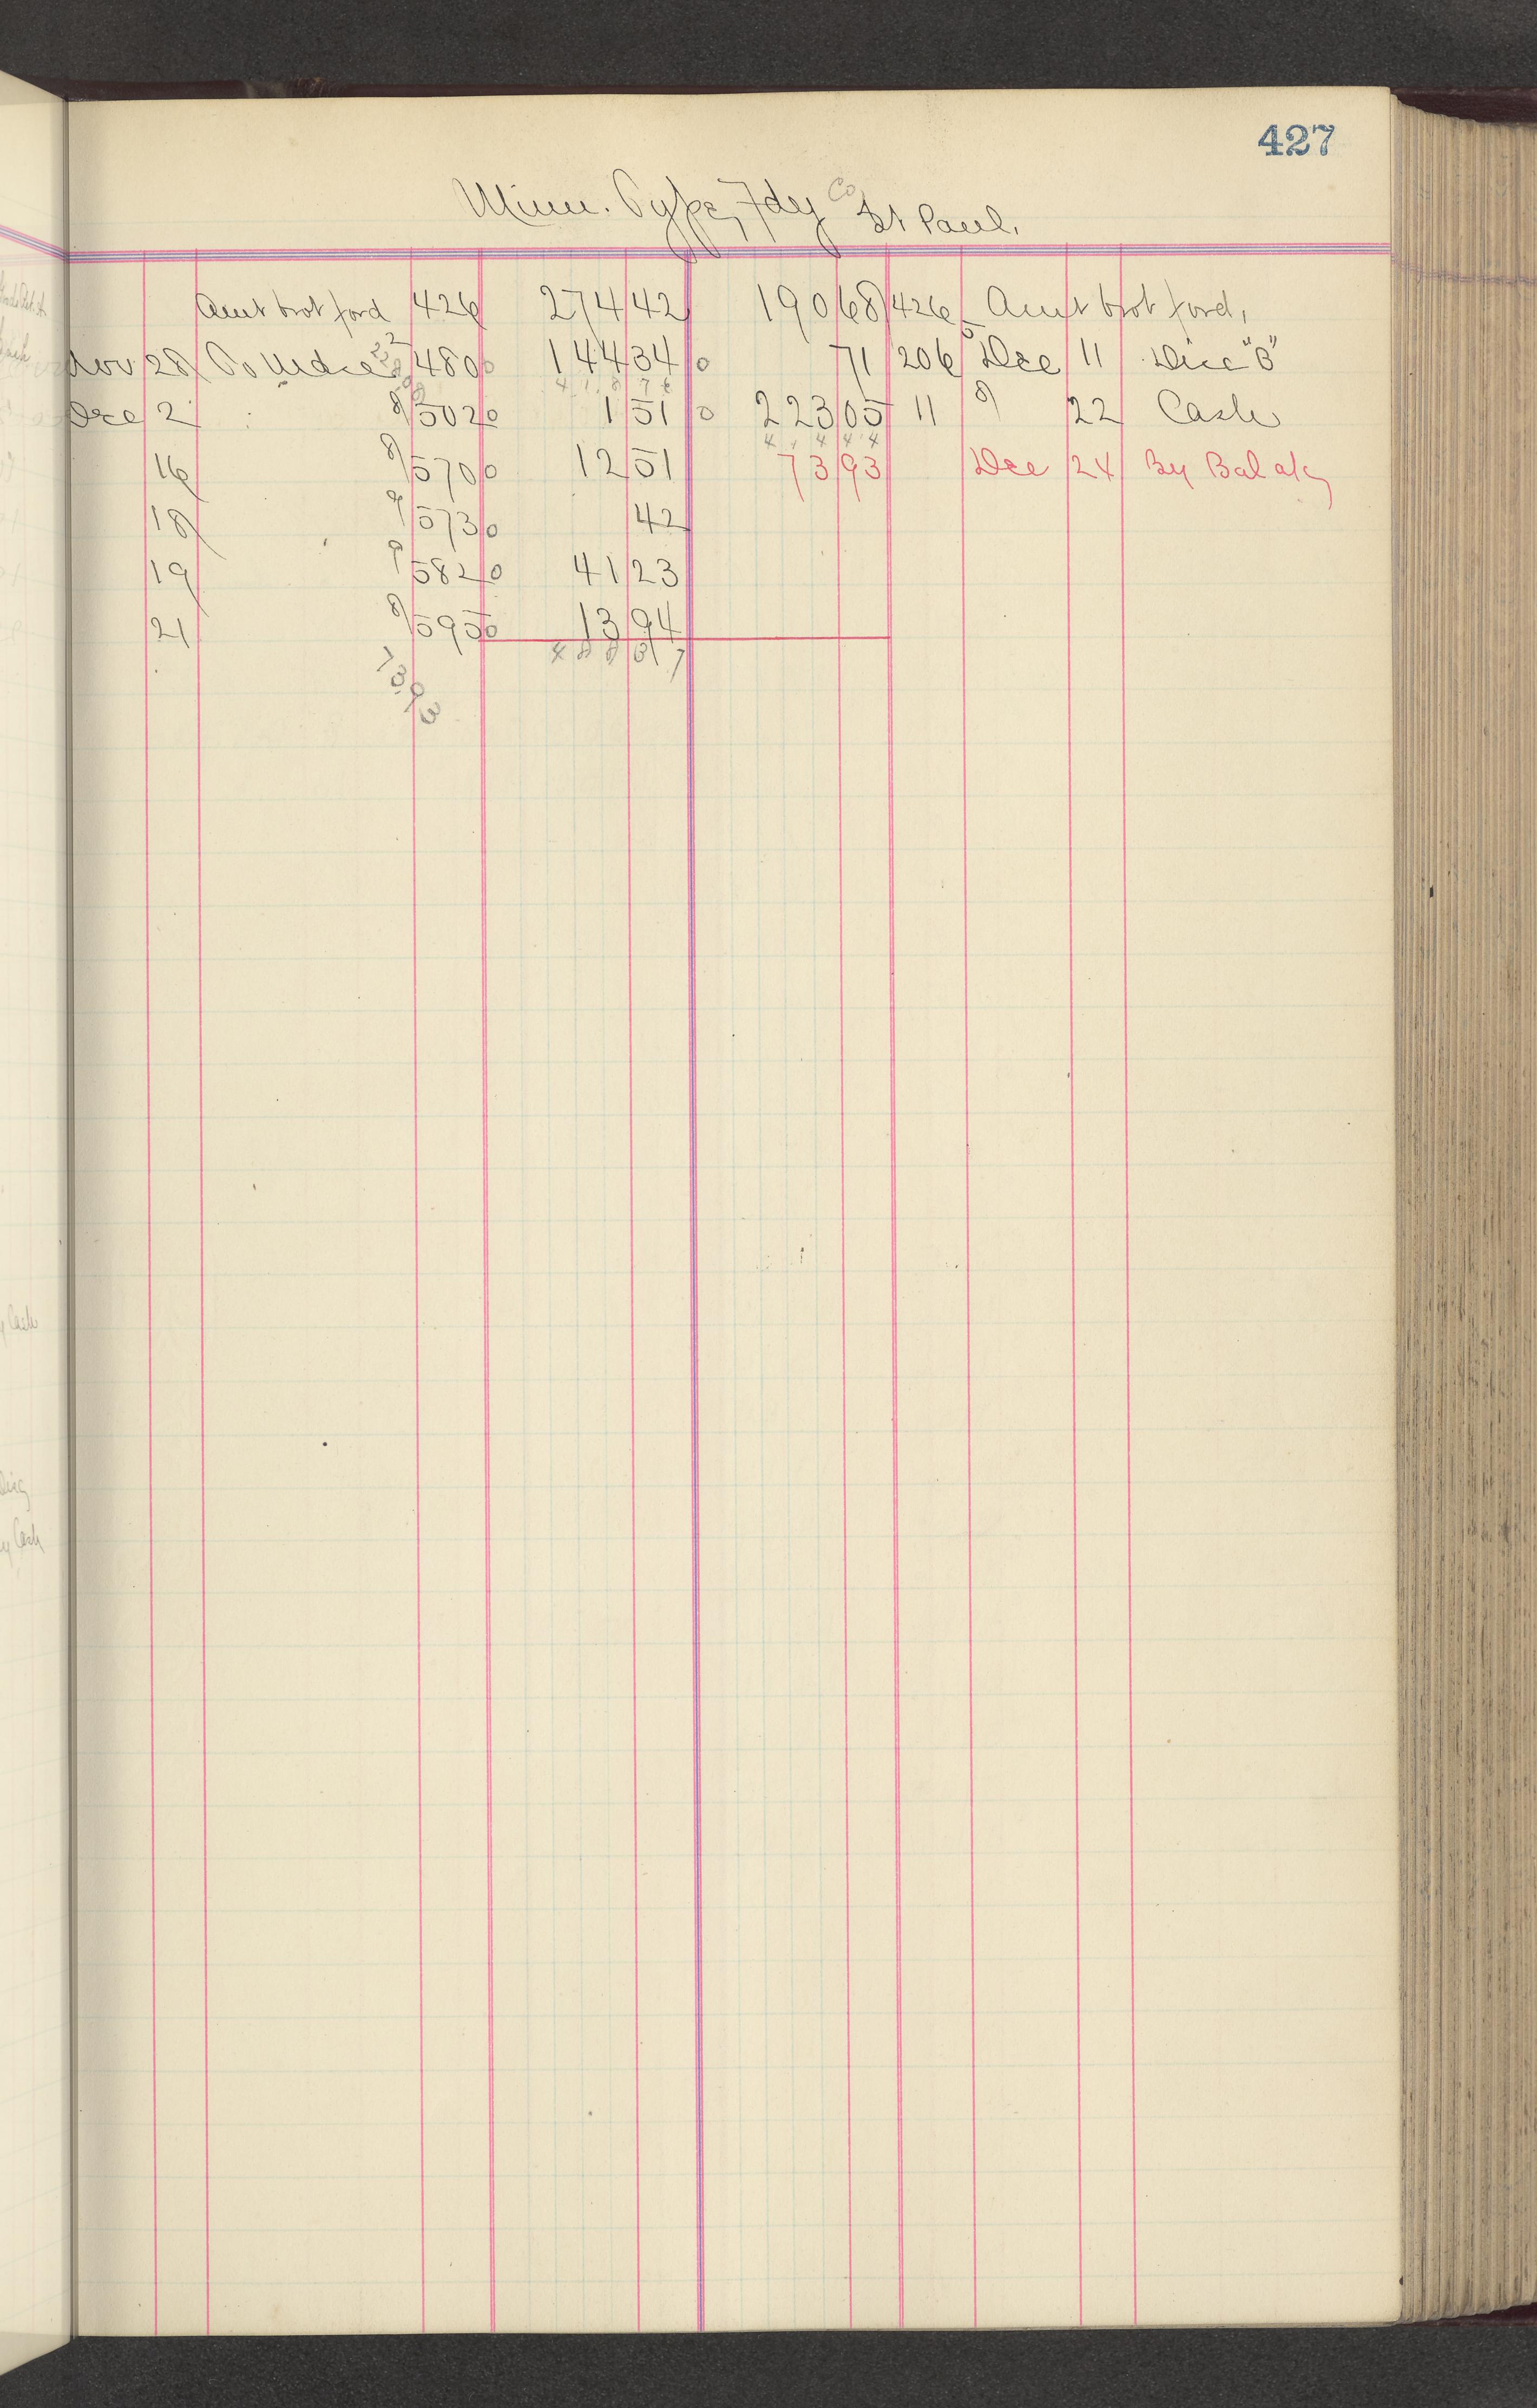 427
Minn. Type Fdy Co St Paul.
Amt brot ford 426 274 42 190 68 426 Amt brot ford,
Nov 28 To Mdse 480 0 144 34 0 71 206 Dec 11 Disc "B"
418 76
Dec 2 8/502 0 1 51 0 223 05 11 8/ 22 Cash
414 44
16 8/570 0 12 51 73 93 Dec 24 By Bal a/c
18 9/573 0 42
19 9/582 0 41 23
21 8/595 0 13 94
488 37
73 93